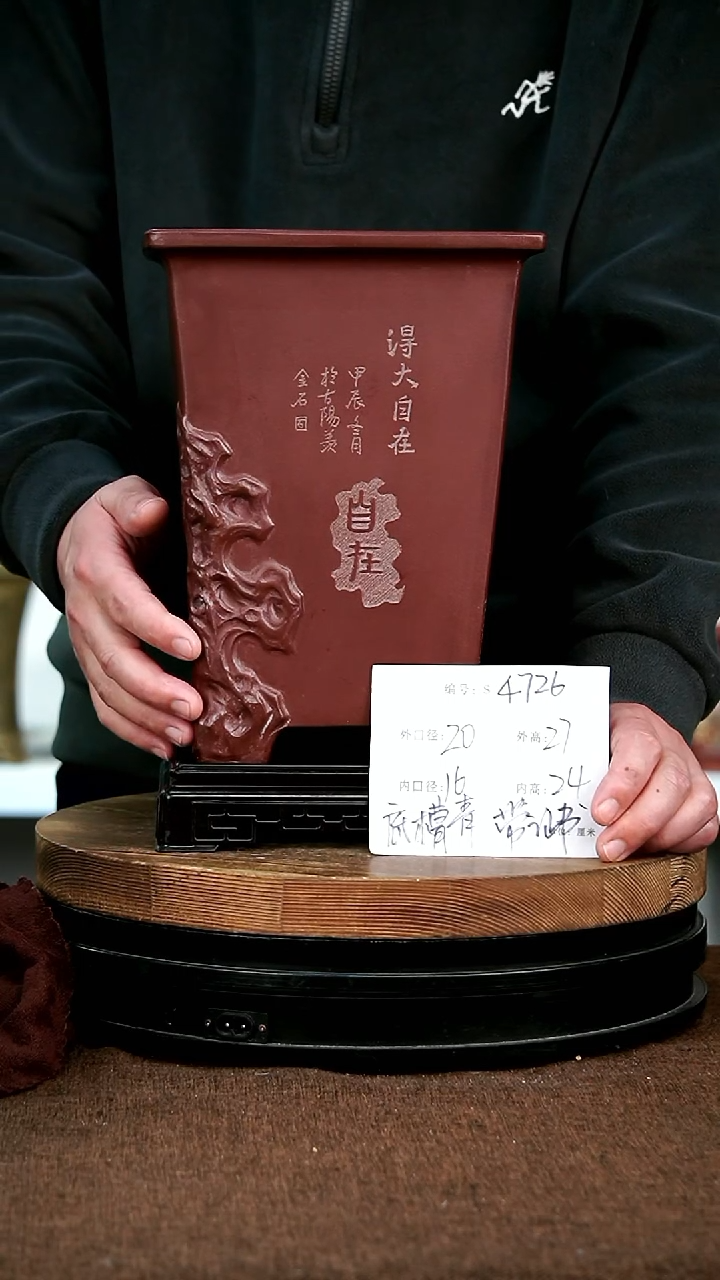 得大自在
甲辰冬月
於古陽羨
金石
自在
编号: S 4726
外口径: 20 外高: 27
内口径: 16 内高: 24
底槽青 带证书 厘米